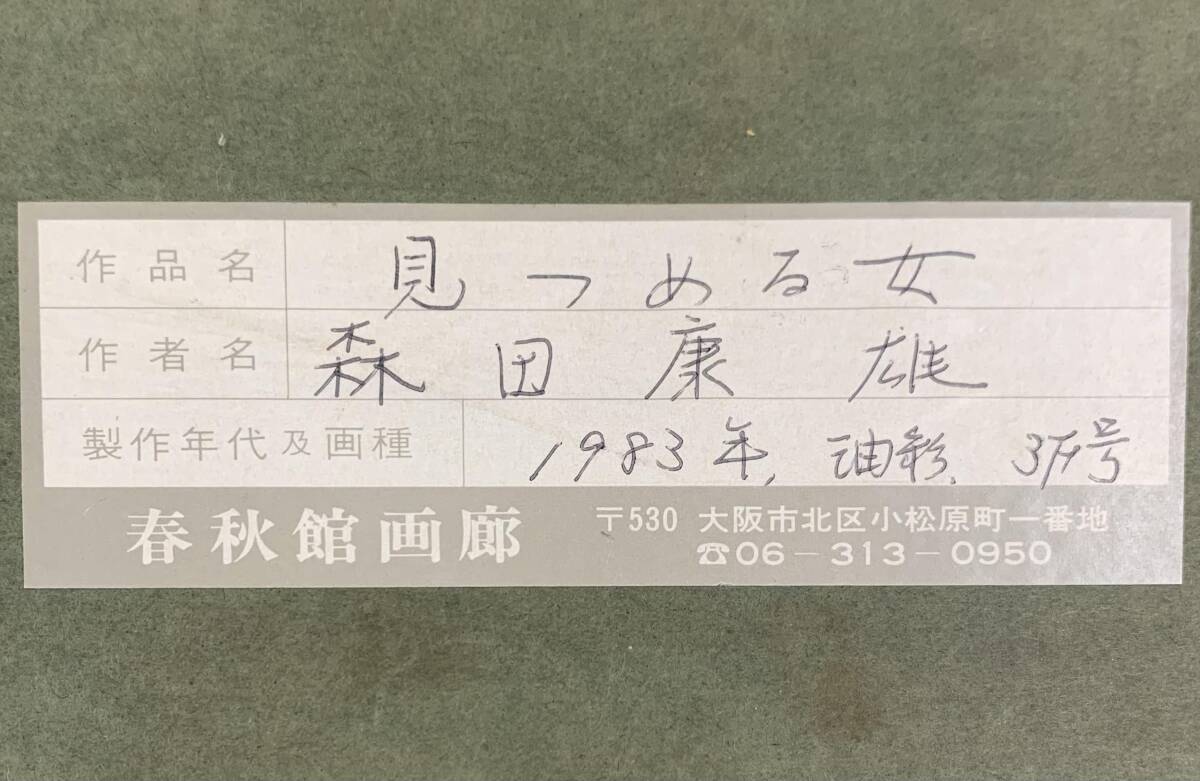 作品名 見つめる女
作者名 森田康雄
製作年代及画種 1983年, 油彩. 3F号
春秋館画廊 〒530 大阪市北区小松原町一番地
☎06-313-0950